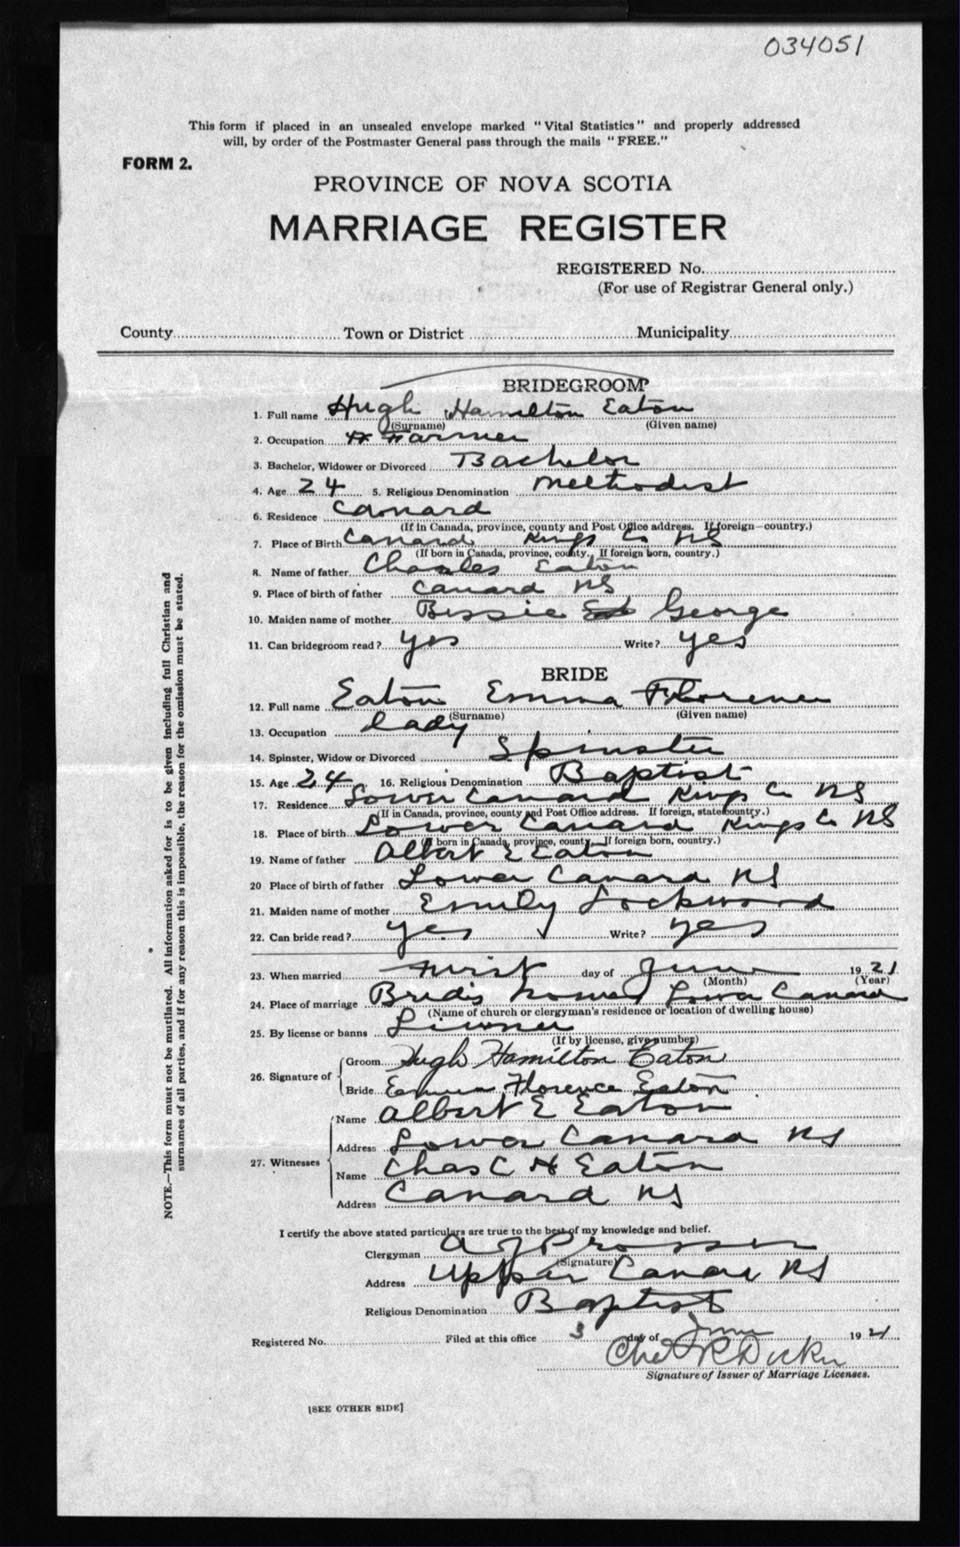 034051
This form if placed in an unsealed envelope marked "Vital Statistics" and properly addressed
will, by order of the Postmaster General pass through the mails "FREE."
FORM 2.
PROVINCE OF NOVA SCOTIA
MARRIAGE REGISTER
REGISTERED No.
(For use of Registrar General only.)
County Town or District Municipality
BRIDEGROOM
1. Full name Hugh Hamilton Eaton
(Surname) (Given name)
2. Occupation Farmer
3. Bachelor, Widower or Divorced Bachelor
4. Age 24 5. Religious Denomination Methodist
6. Residence Canard
(If in Canada, province, county and Post Office address. If foreign—country.)
7. Place of Birth Canard Kings Co NS
(If born in Canada, province, county. If foreign born, country.)
8. Name of father Charles Eaton
9. Place of birth of father Canard NS
10. Maiden name of mother Bessie George
11. Can bridegroom read? yes Write? yes
BRIDE
12. Full name Eaton Emma Florence
(Surname) (Given name)
13. Occupation Lady
14. Spinster, Widow or Divorced Spinster
15. Age 24 16. Religious Denomination Baptist
17. Residence Canard Kings Co NS
(If in Canada, province, county and Post Office address. If foreign, state country.)
18. Place of birth Lower Canard Kings Co NS
(If born in Canada, province, county. If foreign born, country.)
19. Name of father Albert E Eaton
20 Place of birth of father Lower Canard NS
21. Maiden name of mother Emily Lockwood
22. Can bride read? yes Write? yes
23. When married First day of June 1921
(Month) (Year)
24. Place of marriage Brides home Lower Canard
(Name of church or clergyman's residence or location of dwelling house)
25. By license or banns
(If by license, give number)
26. Signature of Groom Hugh Hamilton Eaton
Bride Emma Florence Eaton
27. Witnesses Name Albert E Eaton
Address Lower Canard NS
Name Chas C H Eaton
Address Canard NS
I certify the above stated particulars are true to the best of my knowledge and belief.
Clergyman A J Prosser
(Signature)
Address Upper Canard NS
Religious Denomination Baptist
Registered No. Filed at this office 3 day of June 1921
Signature of Issuer of Marriage Licenses.
[SEE OTHER SIDE]
NOTE.—This form must not be mutilated. All information asked for is to be given including full Christian and
surnames of all parties, and if for any reason this is impossible, the reason for the omission must be stated.